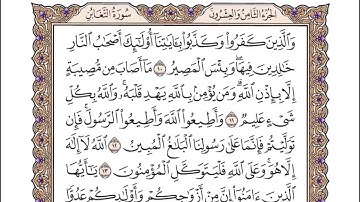 الجزء الثامن والعشرون سورة التغابن
وَٱلَّذِينَ كَفَرُوا۟ وَكَذَّبُوا۟ بِـَٔايَٰتِنَآ أُو۟لَٰٓئِكَ أَصْحَٰبُ ٱلنَّارِ
خَٰلِدِينَ فِيهَا ۖ وَبِئْسَ ٱلْمَصِيرُ ١٠ مَآ أَصَابَ مِن مُّصِيبَةٍ
إِلَّا بِإِذْنِ ٱللَّهِ ۗ وَمَن يُؤْمِنۢ بِٱللَّهِ يَهْدِ قَلْبَهُۥ ۚ وَٱللَّهُ بِكُلِّ
شَىْءٍ عَلِيمٌ ١١ وَأَطِيعُوا۟ ٱللَّهَ وَأَطِيعُوا۟ ٱلرَّسُولَ ۚ فَإِن
تَوَلَّيْتُمْ فَإِنَّمَا عَلَىٰ رَسُولِنَا ٱلْبَلَٰغُ ٱلْمُبِينُ ١٢ ٱللَّهُ لَآ إِلَٰهَ
إِلَّا هُوَ ۚ وَعَلَى ٱللَّهِ فَلْيَتَوَكَّلِ ٱلْمُؤْمِنُونَ ١٣ يَٰٓأَيُّهَا
ٱلَّذِينَ ءَامَنُوٓا۟ إِنَّ مِنْ أَزْوَٰجِكُمْ وَأَوْلَٰدِكُمْ عَدُوًّا